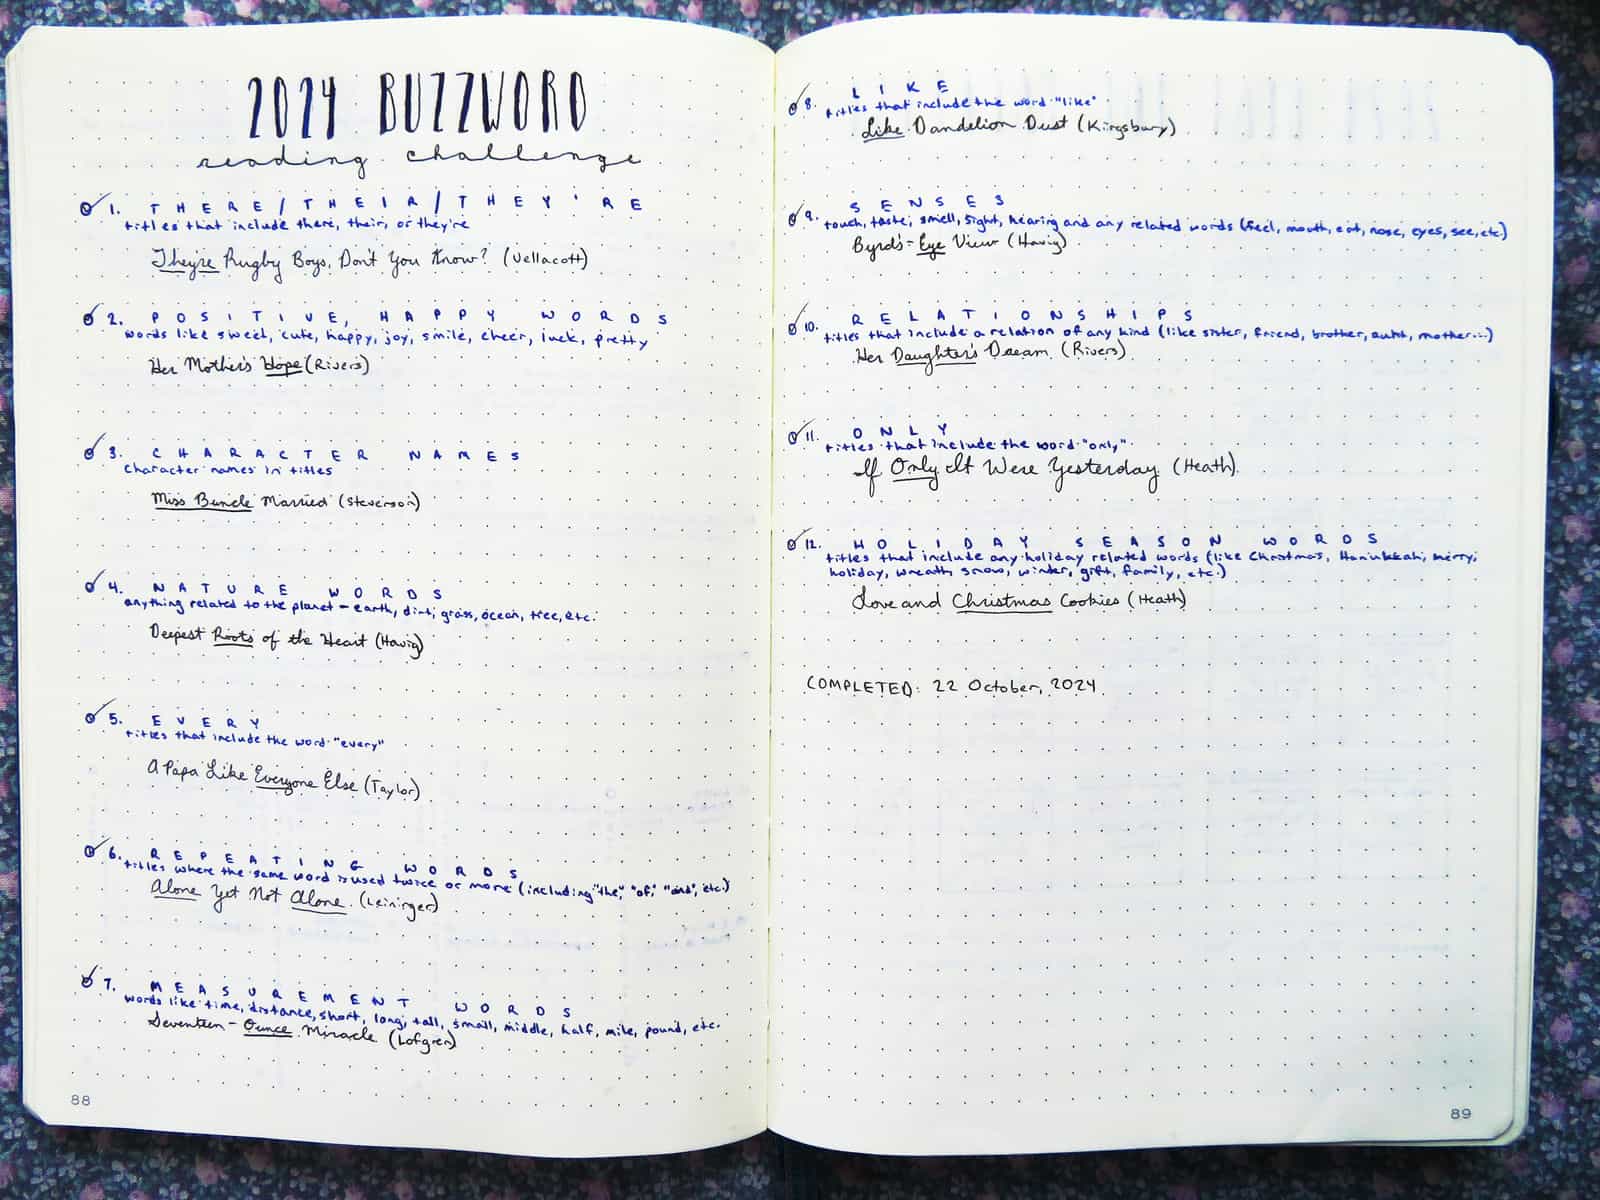 2024 BUZZWORD
reading challenge
1. THERE/THEIR/THEY'RE
titles that include there, their, or they're
They're Rugby Boys, Don't You Know? (Vellacott)
2. POSITIVE, HAPPY WORDS
words like sweet, cute, happy, joy, smile, cheer, luck, pretty
Her Mother's Hope (Rivers)
3. CHARACTER NAMES
character names in titles
Miss Buncle Married (Stevenson)
4. NATURE WORDS
anything related to the planet - earth, dirt, grass, ocean, tree, etc.
Deepest Roots of the Heart (Havig)
5. EVERY
titles that include the word "every"
A Papa Like Everyone Else (Taylor)
6. REPEATING WORDS
titles where the same word is used twice or more (including "the", "of", "and", etc.)
Alone Yet Not Alone (Leininger)
7. MEASUREMENT WORDS
words like time, distance, short, long, tall, small, middle, half, mile, pound, etc.
Seventeen-Ounce Miracle (Lofgren)
88
8. LIKE
titles that include the word "like"
Like Dandelion Dust (Kingsbury)
9. SENSES
touch, taste, smell, sight, hearing and any related words (feel, mouth, eat, nose, eyes, see, etc.)
Byrd's-Eye View (Havig)
10. RELATIONSHIPS
titles that include a relation of any kind (like sister, friend, brother, aunt, mother...)
Her Daughter's Dream (Rivers)
11. ONLY
titles that include the word "only"
If Only It Were Yesterday (Heath)
12. HOLIDAY SEASON WORDS
titles that include any holiday related words (like Christmas, Hanukkah, merry,
holiday, wreath, snow, winter, gift, family, etc.)
Love and Christmas Cookies (Heath)
COMPLETED: 22 October, 2024
89